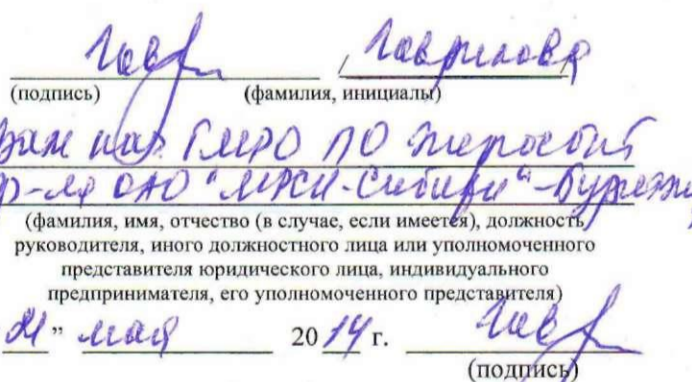 Гаврилова
(подпись) (фамилия, инициалы)
Зам нач ГМРО ПО Энергосбыт
ф-ла ОАО "МРСК-Сибири"-Бурятэнерго
(фамилия, имя, отчество (в случае, если имеется), должность
руководителя, иного должностного лица или уполномоченного
представителя юридического лица, индивидуального
предпринимателя, его уполномоченного представителя)
" мая 2014 г.
(подпись)